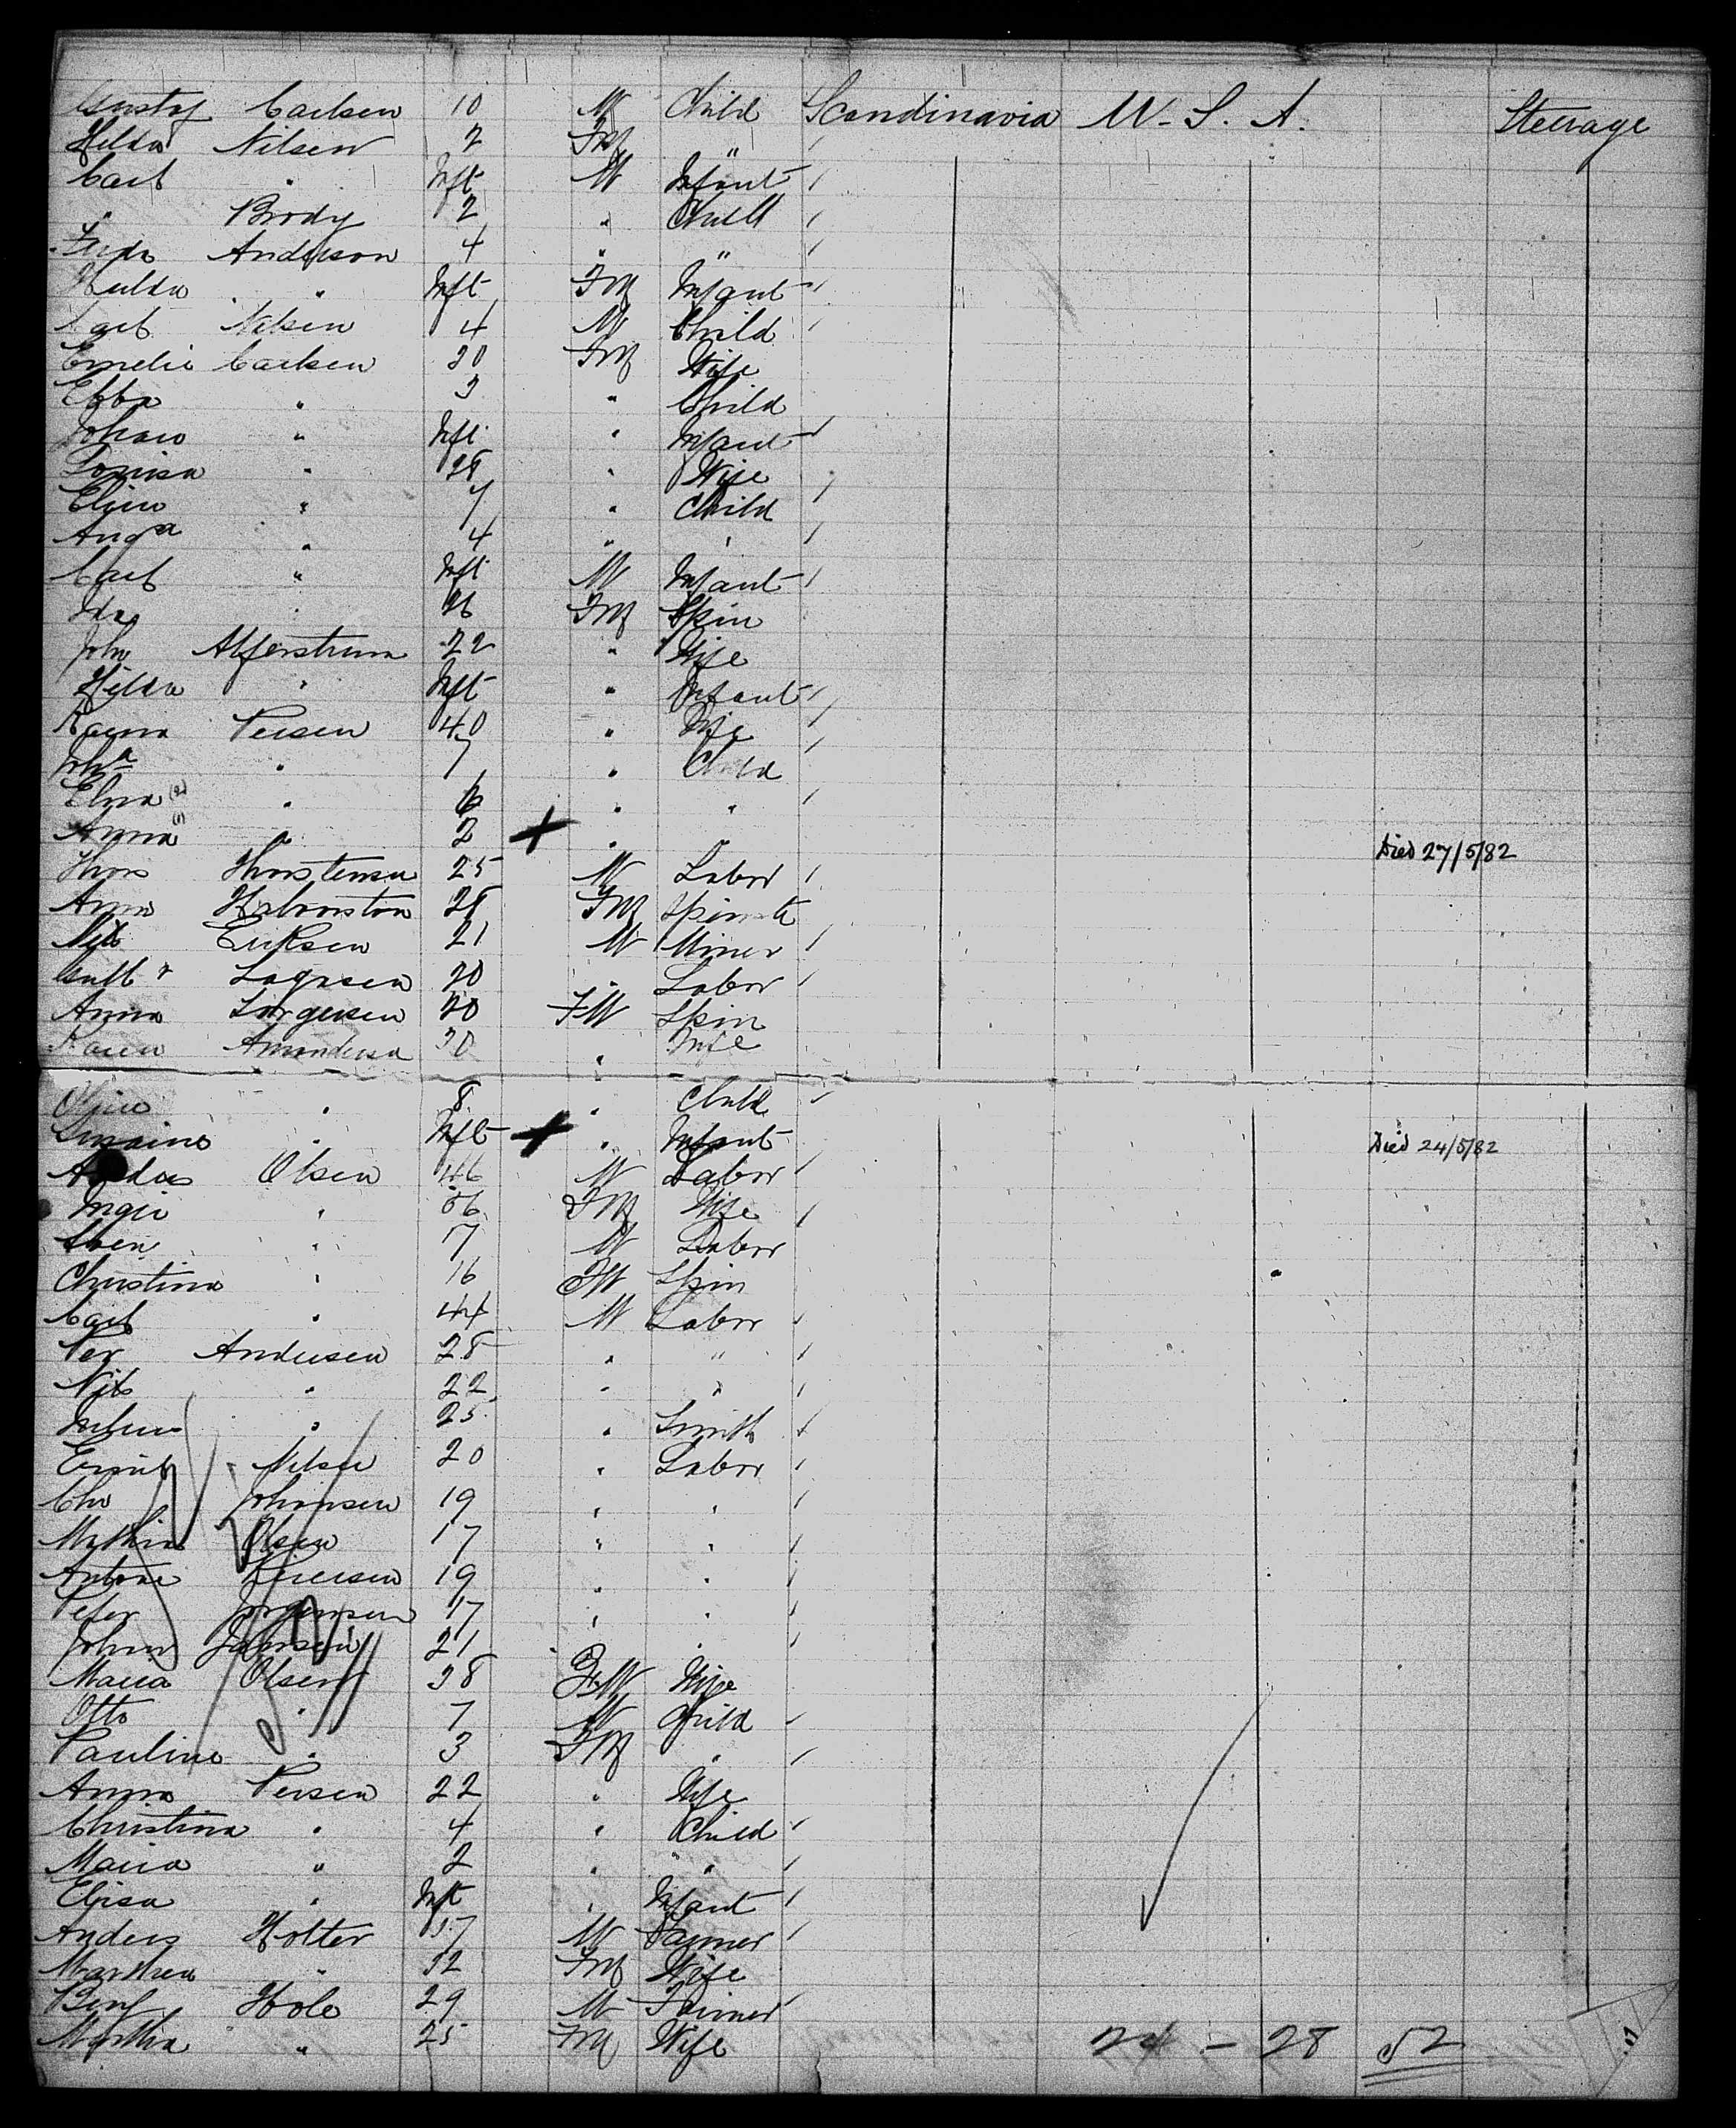 Gustaf Carlsen 10 M Child Scandinavia U. S. A. Steerage
Hilda Nilsen 2 FM "
Carl " Inft M Infant
" Brody 2 " Child
Anderson 4 " "
Hulda " Inft FM Infant
Carl Nilsen 4 M Child
Emelie Carlsen 30 FM Wife
Ebba " 3 " Child
Johan " Inft " Infant
Lovisa " 28 " Wife
Elin " 7 " Child
Auga " 4 " "
Carl " Inft M Infant
Ida " 16 FM Spin
Joh 22 " Wife
Hilda " Inft " Infant
Persen 40 " Wife
Joha " 7 " Child
Elna (2) " 6 " "
Anna (1) " 2 + " " Died 27/5/82
Thors Thorstensen 25 M Labor
Anna Halvorston 28 FM Spinste
Nils Eriksen 21 M Miner
20 " Labor
Anna Jorgensen 20 FM Spin
Karen Amundsen 30 " Wife
Oline " 8 " Child
" Inft + " Infant Died 24/5/82
Olsen 46 M Labor
Inger " 56 FM Wife
Sven " 17 M Labor
Christina " 16 FM Spin
Carl " 44 M Labor
Per Andersen 28 " "
Nils " 22 " "
" 25 " Smith
Ernst Nilsen 20 " Labor
Chr Johansen 19 " "
Mathias Olsen 17 " "
Antone 19 " "
Peter Jorgensen 17 " "
Johan 21 "
Maria Olsen 38 FM Wife
Otto " 7 M Child
Pauline " 3 FM "
Anna Persen 22 " Wife
Christina " 4 " Child
Maria " 2 " "
Elisa " Inft " Infant
Anders Holter 57 M Farmer
Marthea " 52 FM Wife
Hole 29 M Farmer
Martha " 25 FM Wife
24 - 28 52